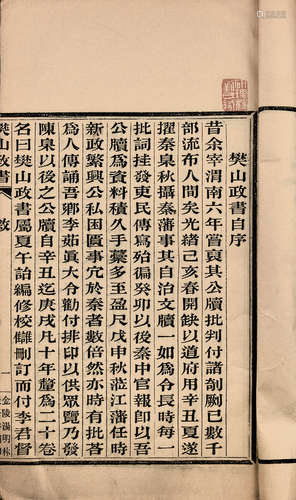 樊山政書自序
昔余宰渭南六年嘗裒其公牘批判付諸剞劂已數千
部流布人間矣光緒己亥春開缺以道府用辛丑夏遂
擢秦臬秋攝秦藩事其自治文牘一如爲令長時每一
批詞挂發吏民傳寫殆徧癸卯以後秦中官報即以吾
公牘爲資料積久手稾多至盈尺戊申秋涖江藩任時
新政繁興公私困匱事宂於秦者數倍然亦時有批荅
爲人傳誦吾鄉李茹眞大令勸付排印以供衆覽乃發
陳臬以後之公牘自辛丑迄庚戌凡十年釐爲二十卷
名曰樊山政書屬夏午詒編修校讎刪訂而付李君督
樊山政書
敘
一
金陵湯明林